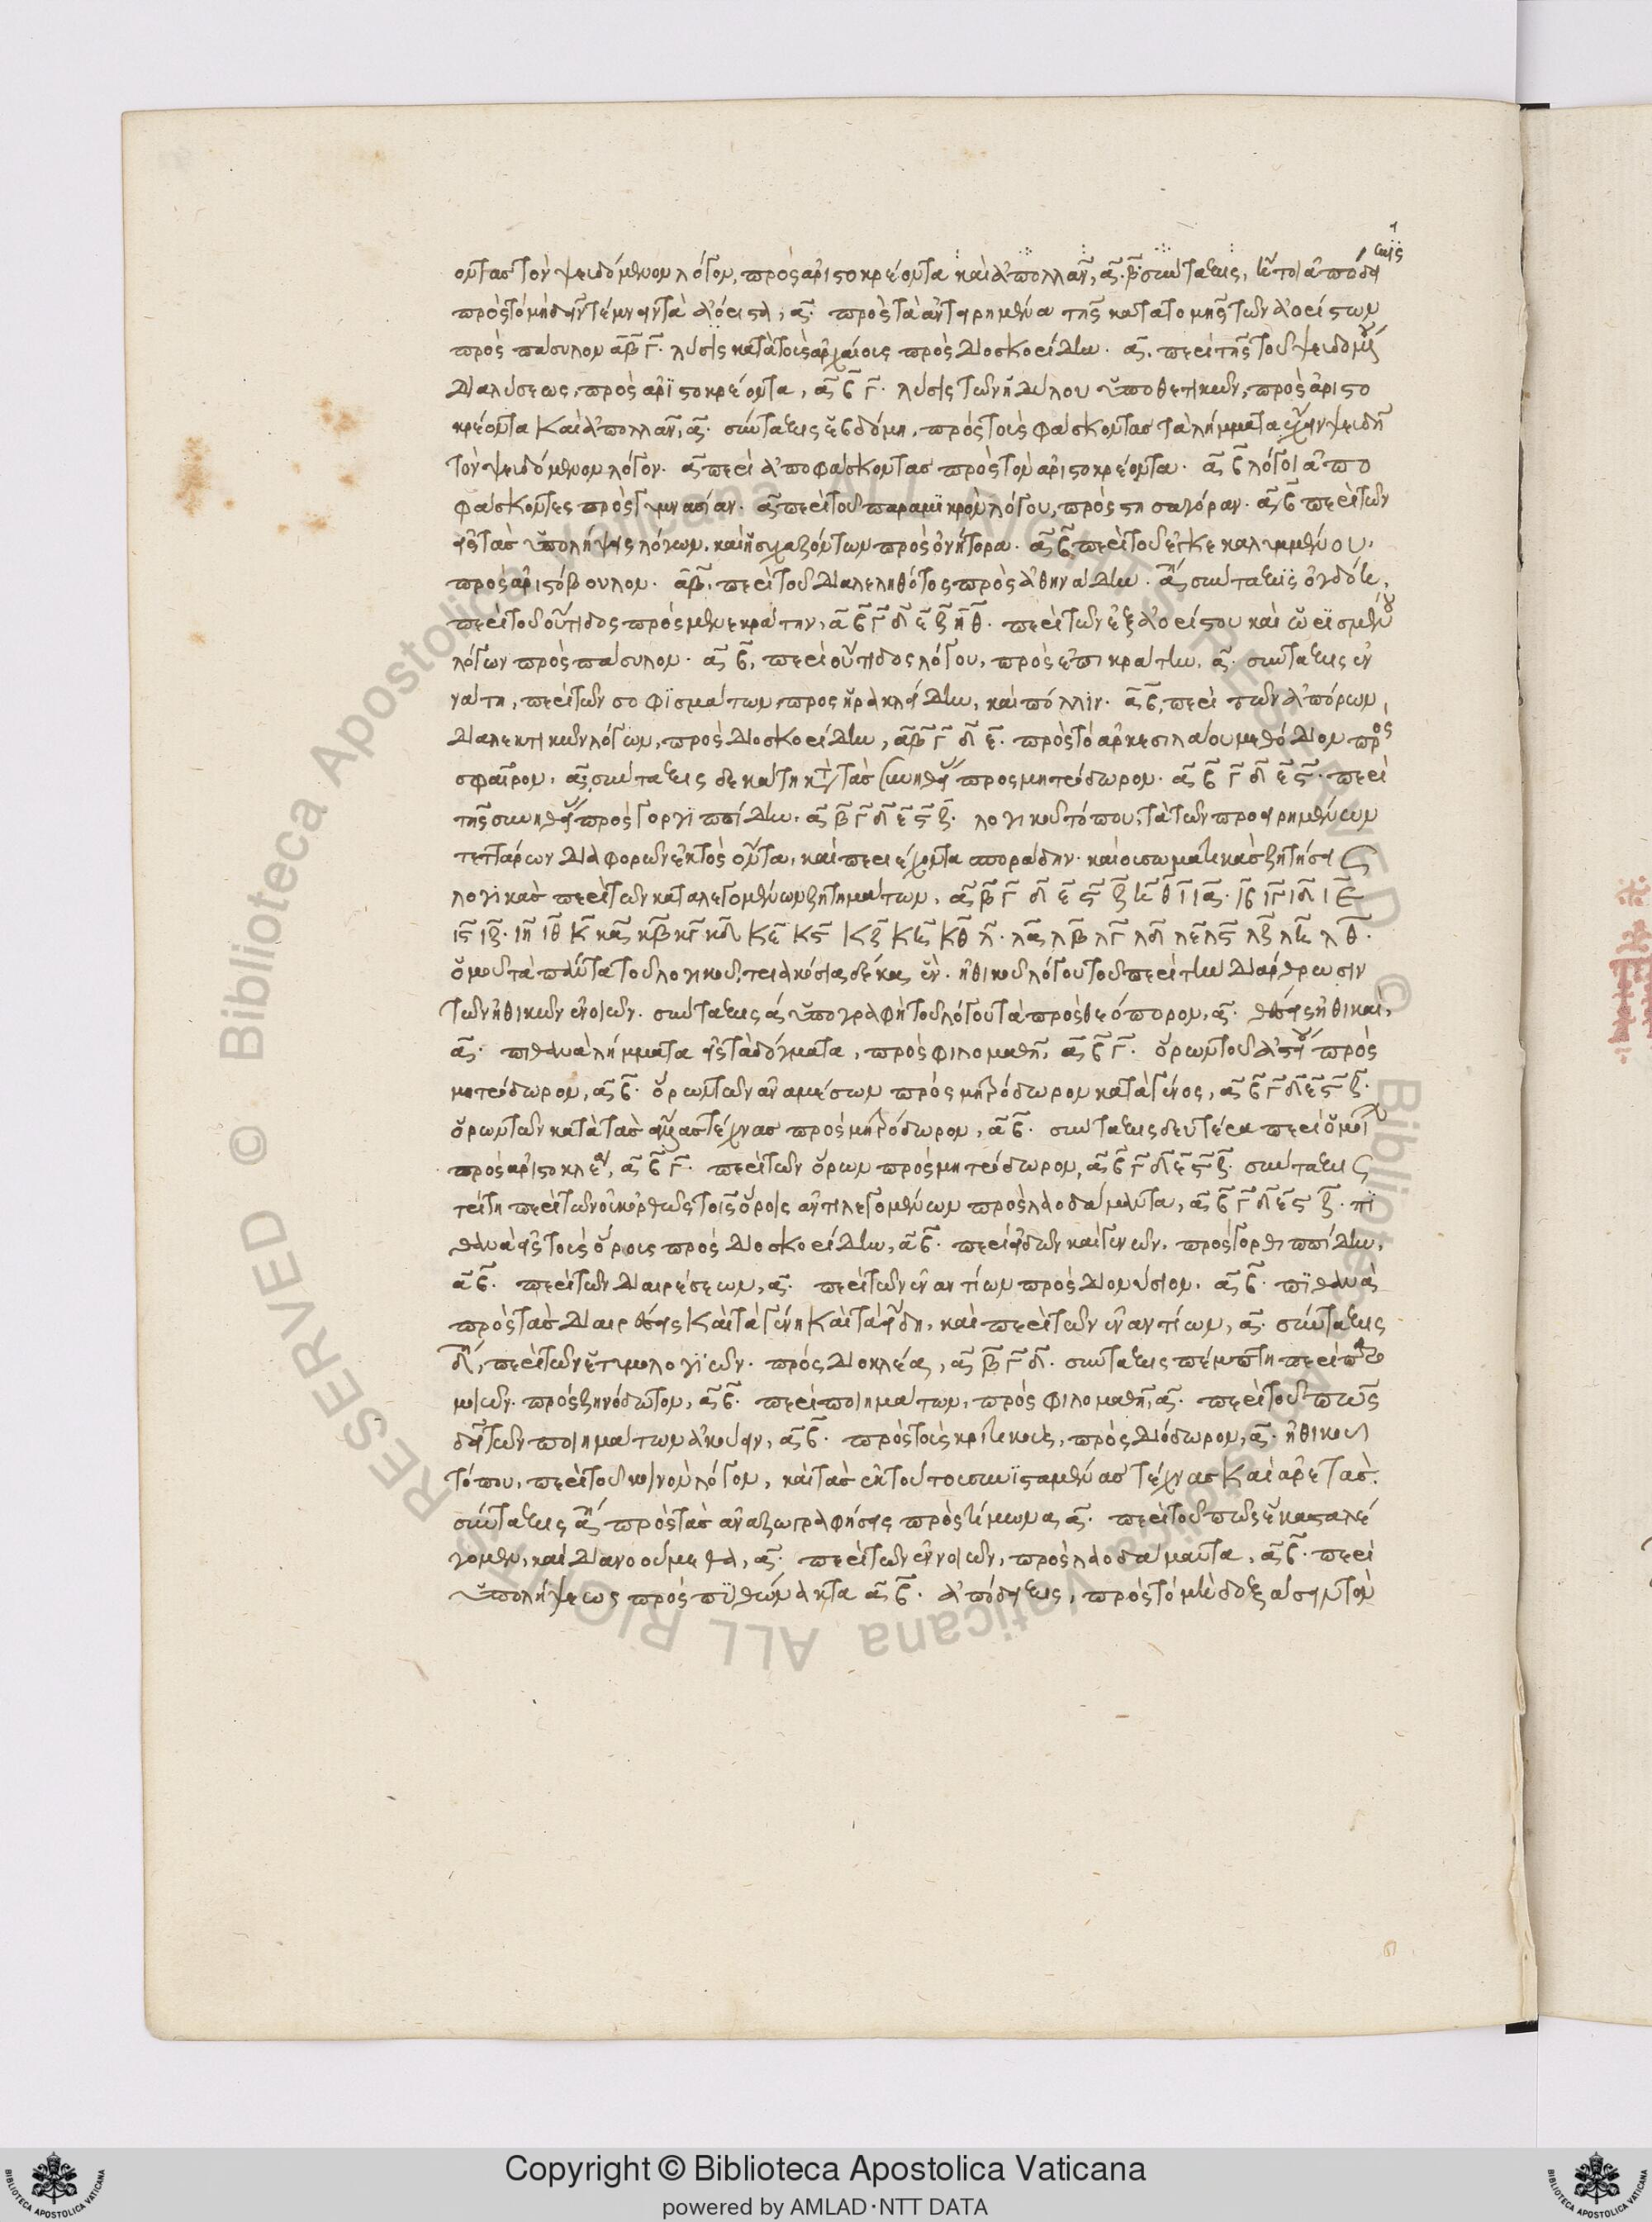 οντας τὸν ψευδόμενον λόγον, πρὸς ἀριστοκρέοντα καὶ ἀπολλᾶν, α. β σύνταξις, λόγοι ἀποδείξεις
πρὸς τὸ μὴ δεῖν τέμνειν τὰ ἀόριστα, α. πρὸς τὰ ἀντειρημένα τῆς κατατομῆς τῶν ἀορίστων
πρὸς πάσυλον α β γ. λύσις κατὰ τοὺς ἀρχαίους πρὸς διοσκορίδην. α. περὶ τῆς τοῦ ψευδομένου
διαλύσεως, πρὸς ἀριστοκρέοντα, α β γ. λύσις τῶν ἡδύλου ὑποθετικῶν, πρὸς ἀριστο
κρέοντα καὶ ἀπολλᾶν, α. σύνταξις ἑβδόμη, πρὸς τοὺς φάσκοντας τὰ λήμματα ἔχειν ψευδῆ
τὸν ψευδόμενον λόγον. α περὶ ἀποφάσκοντας πρὸς τὸν ἀριστοκρέοντα. α β λόγοι ἀπο
φάσκοντες πρὸς γυμνασίαν. α περὶ τοῦ παρὰ μικρὸν λόγου, πρὸς στησαγόραν. α β περὶ τῶν
εἰς τὰς ὑπολήψεις λόγων, καὶ ἡσυχαζόντων πρὸς ὀνήτορα. α β περὶ τοῦ ἐγκεκαλυμμένου,
πρὸς ἀριστόβουλον. α β. περὶ τοῦ διαλεληθότος πρὸς ἀθηνάδην. α σύνταξις ὀγδόη,
περὶ τοῦ οὔτιδος πρὸς μενεκράτην, α β γ δ ε ζ η θ. περὶ τῶν ἐξ ἀορίστου καὶ ὡρισμένου
λόγων πρὸς πάσυλον. α β, περὶ οὔτιδος λόγου, πρὸς ἐπικράτην, α. σύνταξις ἐν
νάτη, περὶ τῶν σοφισμάτων, πρὸς ἡρακλείδην, καὶ πόλλιν. α β, περὶ τῶν ἀπόρων
διαλεκτικῶν λόγων, πρὸς διοσκορίδην, α β γ δ ε. πρὸς τὸ ἀρκεσιλάου μεθόδιον πρὸς
σφαῖρον, α, σύνταξις δεκάτη κατὰ τὰς συνηθείας πρὸς μητρόδωρον. α β γ δ ε ς. περὶ
τῆς συνηθείας πρὸς γοργιππίδην. α β γ δ ε ς ζ. λογικοῦ τόπου, τὰ τῶν προειρημένων
τεττάρων διαφορῶν ἐκτὸς ὄντα, καὶ περιέχοντα σποράδην. καὶ οὐ σωματικὰς ζητήσεις
λογικὰς περὶ τῶν καταλεγομένων ζητημάτων, α β γ δ ε ς ζ η θ ι ια. ιβ ιγ ιδ ιε
ις ιζ. ιη ιθ κ κα κβ κγ κδ κε κς κζ κη κθ λ. λα λβ λγ λδ λε λς λζ λη λθ.
ὁμοῦ τὰ πάντα τοῦ λογικοῦ, τριακόσια δέκα ἕν. ἠθικοῦ λόγου τοῦ περὶ τὴν διάρθρωσιν
τῶν ἠθικῶν ἐννοιῶν. σύνταξις α ὑπογραφὴ τοῦ λόγου τὰ πρὸς θεόπορον, α. θέσεις ἠθικαὶ,
α. πιθανὰ λήμματα εἰς τὰ δόγματα, πρὸς φιλομαθῆ, α β γ. ὅρων τοῦ ἀστείου πρὸς
μητρόδωρον, α β. ὅρων τῶν ἀναμέσων πρὸς μητρόδωρον κατὰ γένος, α β γ δ ε ς ζ.
ὅρων τῶν κατὰ τὰς ἄλλας τέχνας πρὸς μητρόδωρον, α β. σύνταξις δευτέρα περὶ ὁμοίων
πρὸς ἀριστοκλέαν, α β γ. περὶ τῶν ὅρων πρὸς μητρόδωρον, α β γ δ ε ς ζ. σύνταξις
τρίτη περὶ τῶν οὐκ ὀρθῶς τοῖς ὅροις ἀντιλεγομένων πρὸς λαοδάμαντα, α β γ δ ε ς ζ. πι
θανὰ εἰς τοὺς ὅρους πρὸς διοσκορίδην, α β. περὶ εἰδῶν καὶ γενῶν, πρὸς γοργιππίδην,
α β. περὶ τῶν διαιρέσεων, α. περὶ τῶν ἐναντίων πρὸς διονύσιον. α β. πιθανὰ
πρὸς τὰς διαιρέσεις καὶ τὰ γένη καὶ τὰ εἴδη, καὶ περὶ τῶν ἐναντίων, α. σύνταξις
δ, περὶ τῶν ἐτυμολογικῶν. πρὸς διοκλέα, α β γ δ. σύνταξις πέμπτη περὶ παροι
μιῶν. πρὸς ζηνόδοτον, α β. περὶ ποιημάτων, πρὸς φιλομαθῆ, α. περὶ τοῦ πῶς
δεῖ τῶν ποιημάτων ἀκούειν, α β. πρὸς τοὺς κριτικοὺς, πρὸς διόδωρον, α. ἠθικοῦ
τόπου, περὶ τοῦ κοινοῦ λόγου, καὶ τὰς ἐκ τούτου συνισταμένας τέχνας καὶ ἀρετάς.
σύνταξις α πρὸς τὰς ἀναζωγραφήσεις πρὸς τιμώνακτα α. περὶ τοῦ πῶς ἕκαστα λέ
γομεν, καὶ διανοούμεθα, α. περὶ τῶν ἐννοιῶν, πρὸς λαοδάμαντα, α β. περὶ
ὑπολήψεως πρὸς πυθώνακτα α β. ἀποδείξεις, πρὸς τὸ μὴ δοξάσειν τὸν